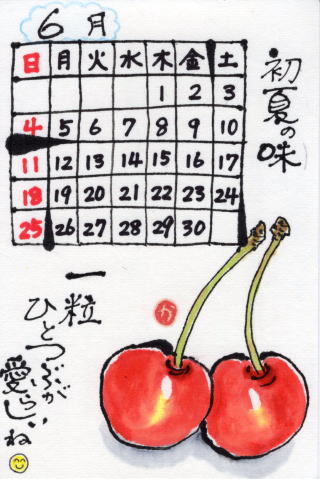 6月
日 月 火 水 木 金 土
1 2 3
4 5 6 7 8 9 10
11 12 13 14 15 16 17
18 19 20 21 22 23 24
25 26 27 28 29 30
初夏の味
か
一粒
ひとつぶが
愛らしいね